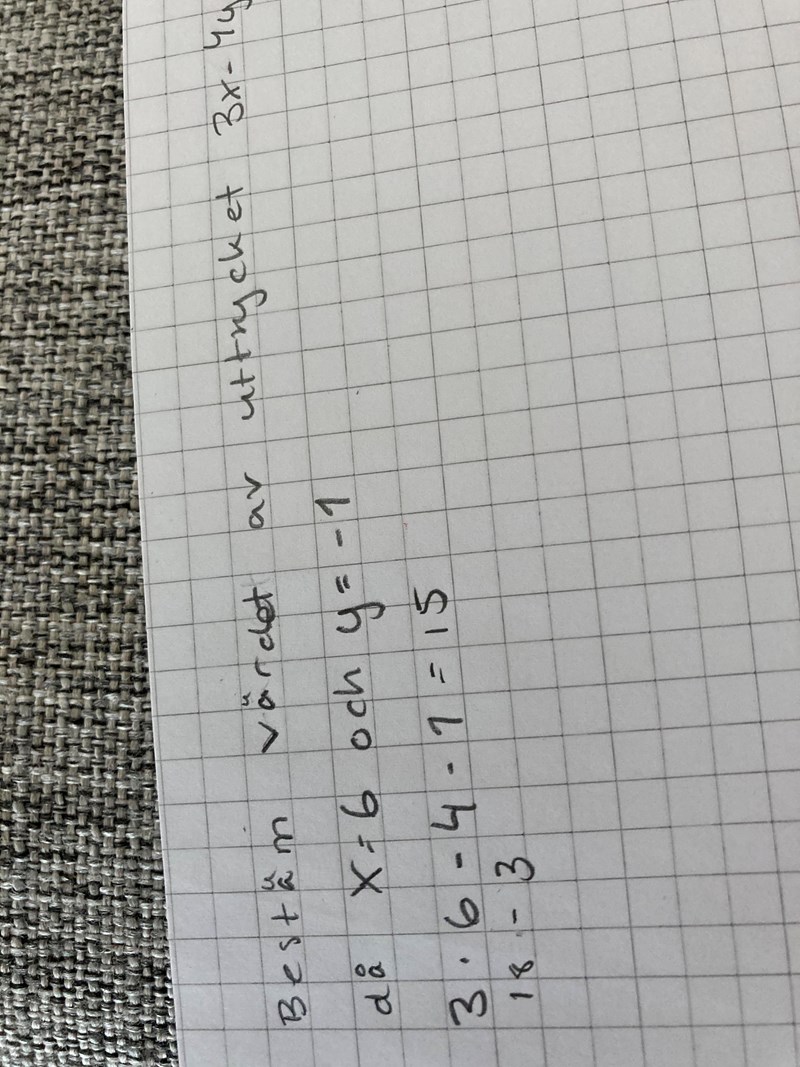 Bestäm värdet av uttrycket 3x-4y
då x=6 och y=-1
3·6-4-1=15
18-3